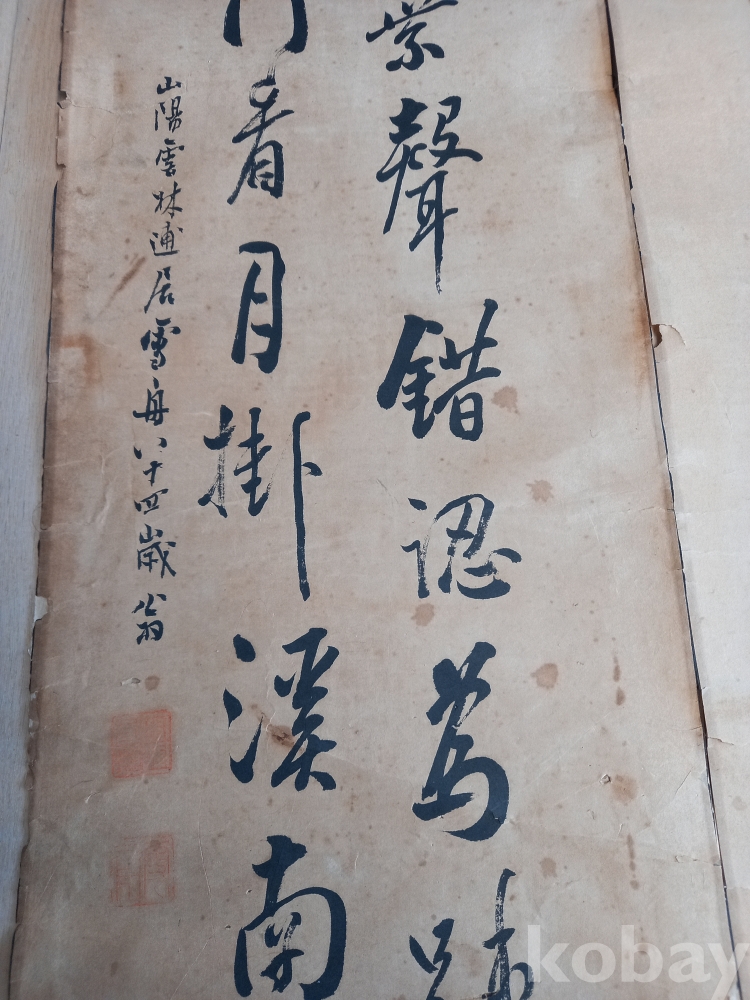 葉聲錯認為疎
門看月掛溪南
山陽雲林逋居雪舟八十四歲翁
kobay